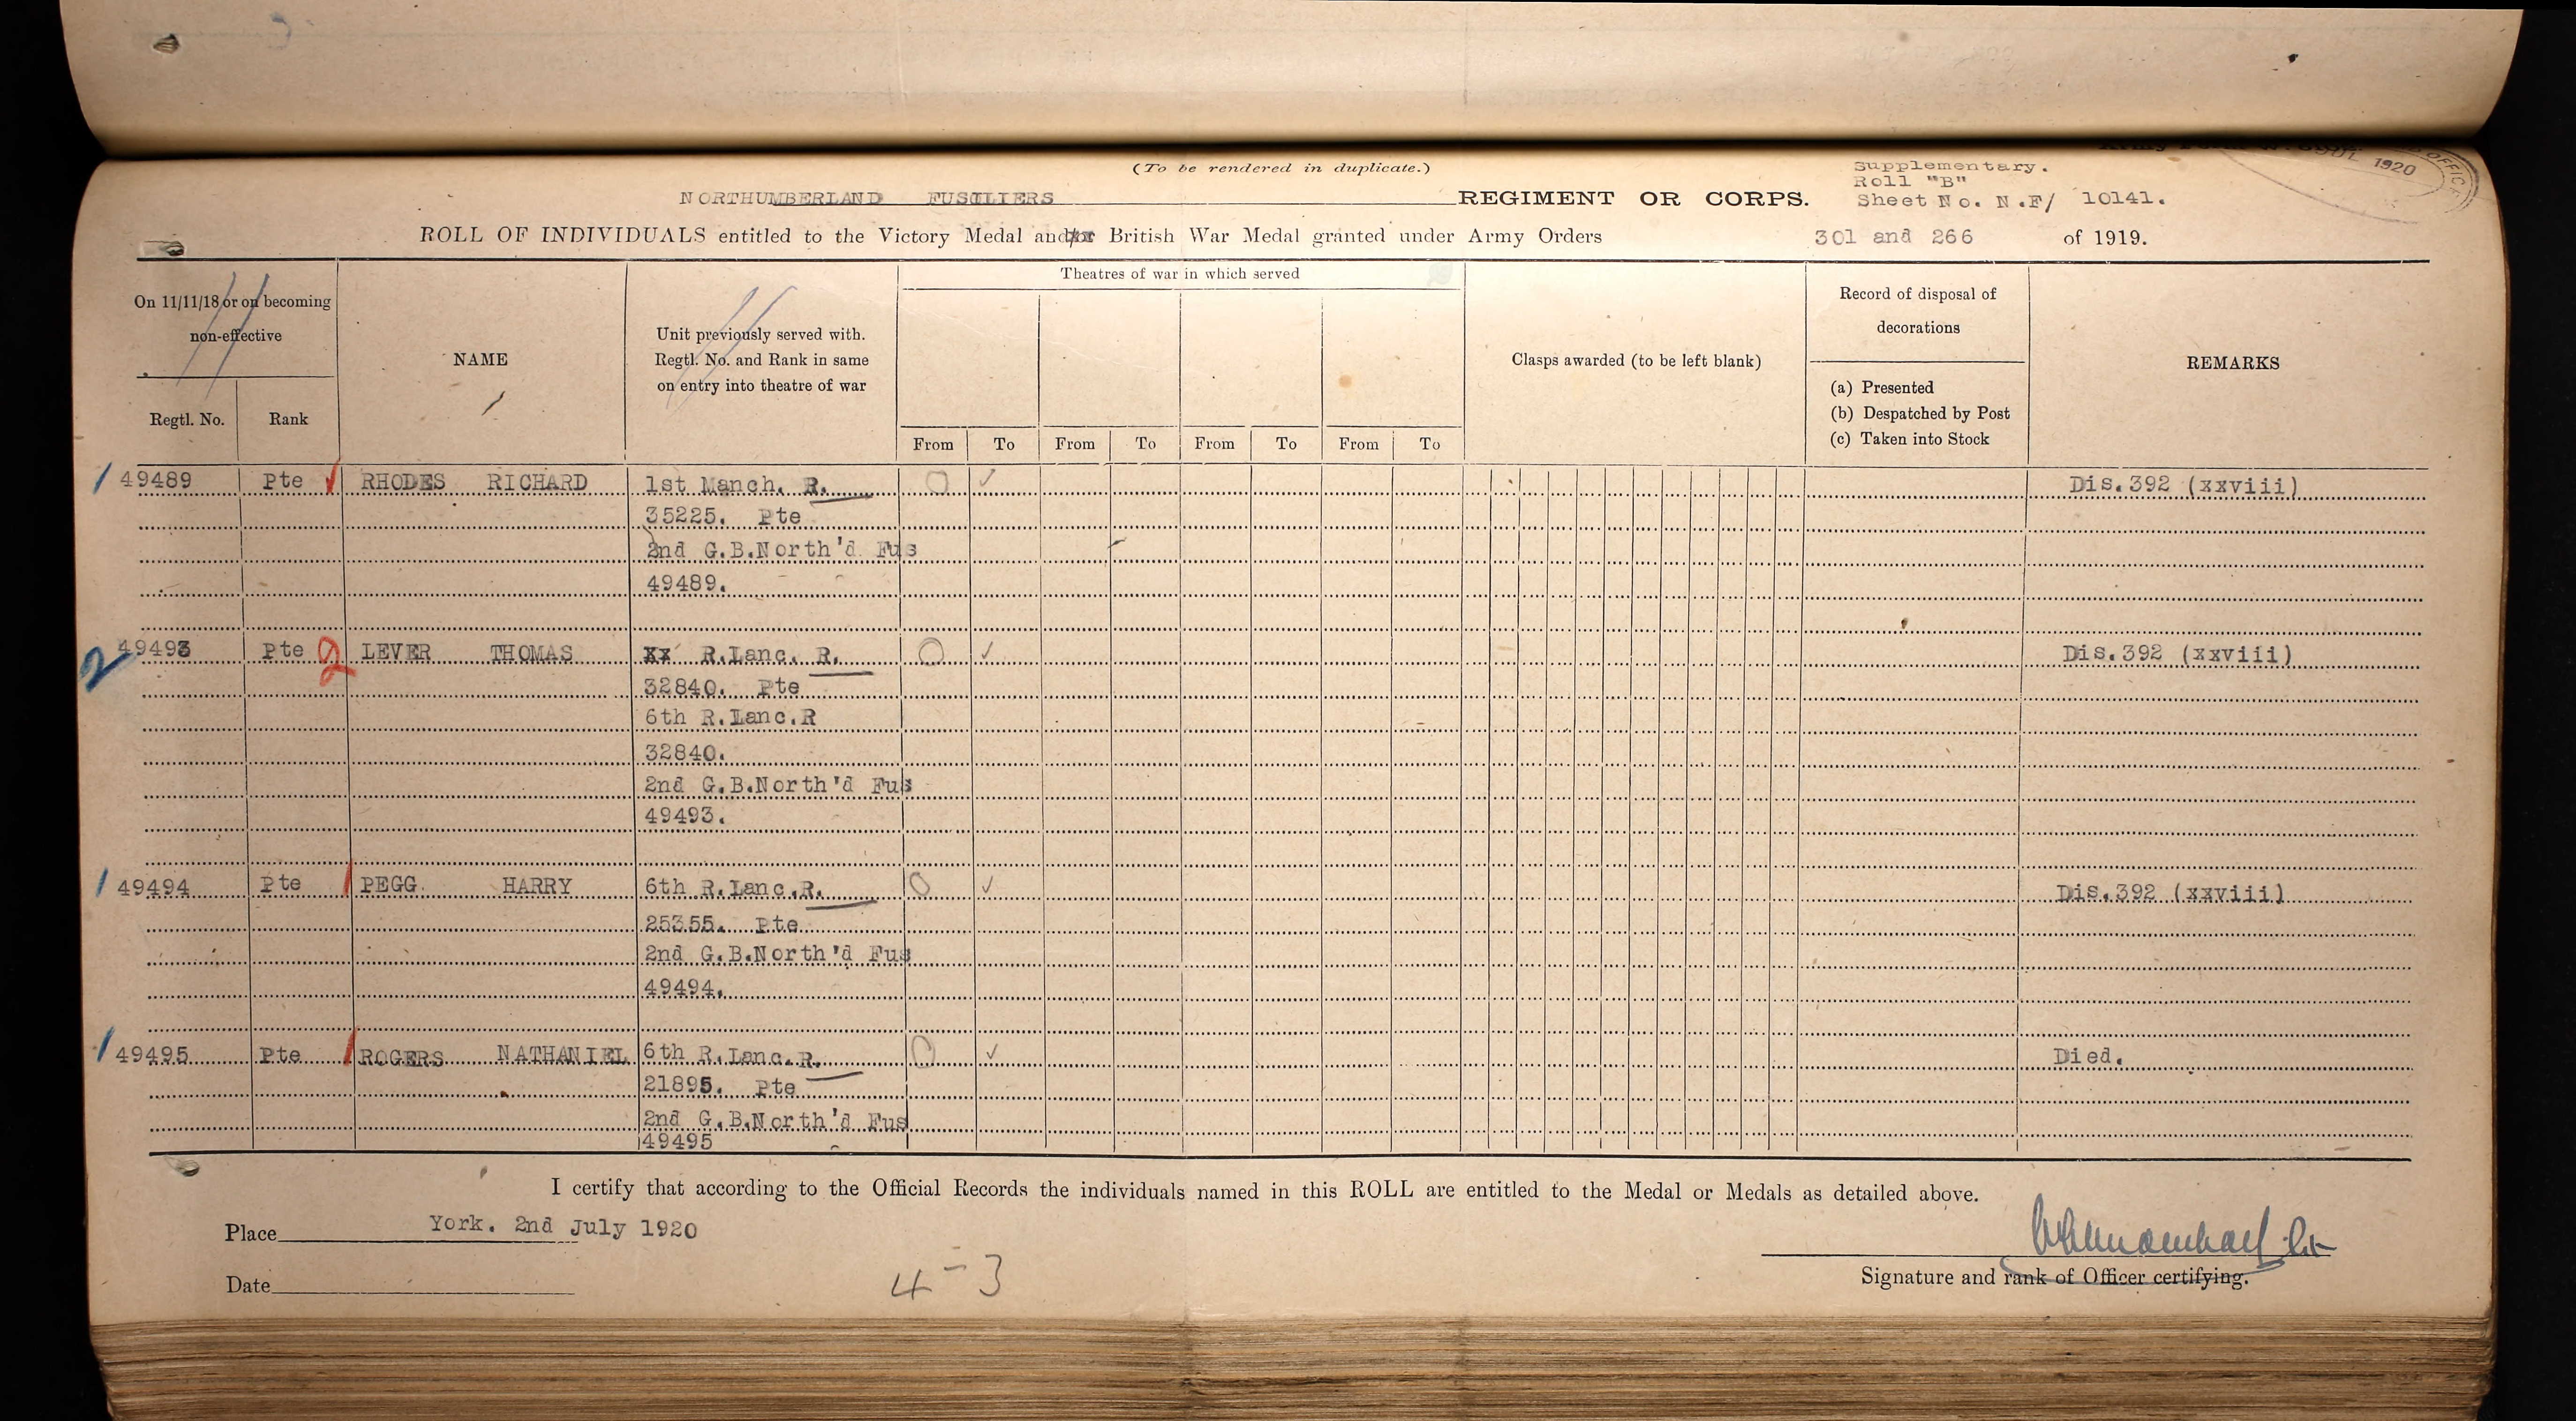 (To be rendered in duplicate.)
Supplementary.
Roll "B"
Sheet No. N.F/ 10141.
1920
NORTHUMBERLAND FUSILIERS REGIMENT OR CORPS.
ROLL OF INDIVIDUALS entitled to the Victory Medal and/or British War Medal granted under Army Orders 301 and 266 of 1919.
On 11/11/18 or on becoming
non-effective
Regtl. No.
Rank
NAME
Unit previously served with.
Regtl. No. and Rank in same
on entry into theatre of war
Theatres of war in which served
From To From To From To From To
Clasps awarded (to be left blank)
Record of disposal of
decorations
(a) Presented
(b) Despatched by Post
(c) Taken into Stock
REMARKS
1 49489 Pte RHODES RICHARD 1st Manch. R. Dis.392 (xxviii)
35225. Pte
2nd G.B.North'd Fus
49489.
2 49493 Pte 2 LEVER THOMAS xx R.Lanc. R. Dis.392 (xxviii)
32840. Pte
6th R.Lanc.R
32840.
2nd G.B.North'd Fus
49493.
1 49494 Pte 1 PEGG HARRY 6th R.Lanc.R. Dis.392 (xxviii)
25355. Pte
2nd G.B.North'd Fus
49494.
1 49495 Pte 1 ROGERS NATHANIEL 6th R.Lanc.R. Died.
21895. Pte
2nd G.B.North'd Fus
49495
I certify that according to the Official Records the individuals named in this ROLL are entitled to the Medal or Medals as detailed above.
Place York. 2nd July 1920
Date
4-3
Signature and rank of Officer certifying.